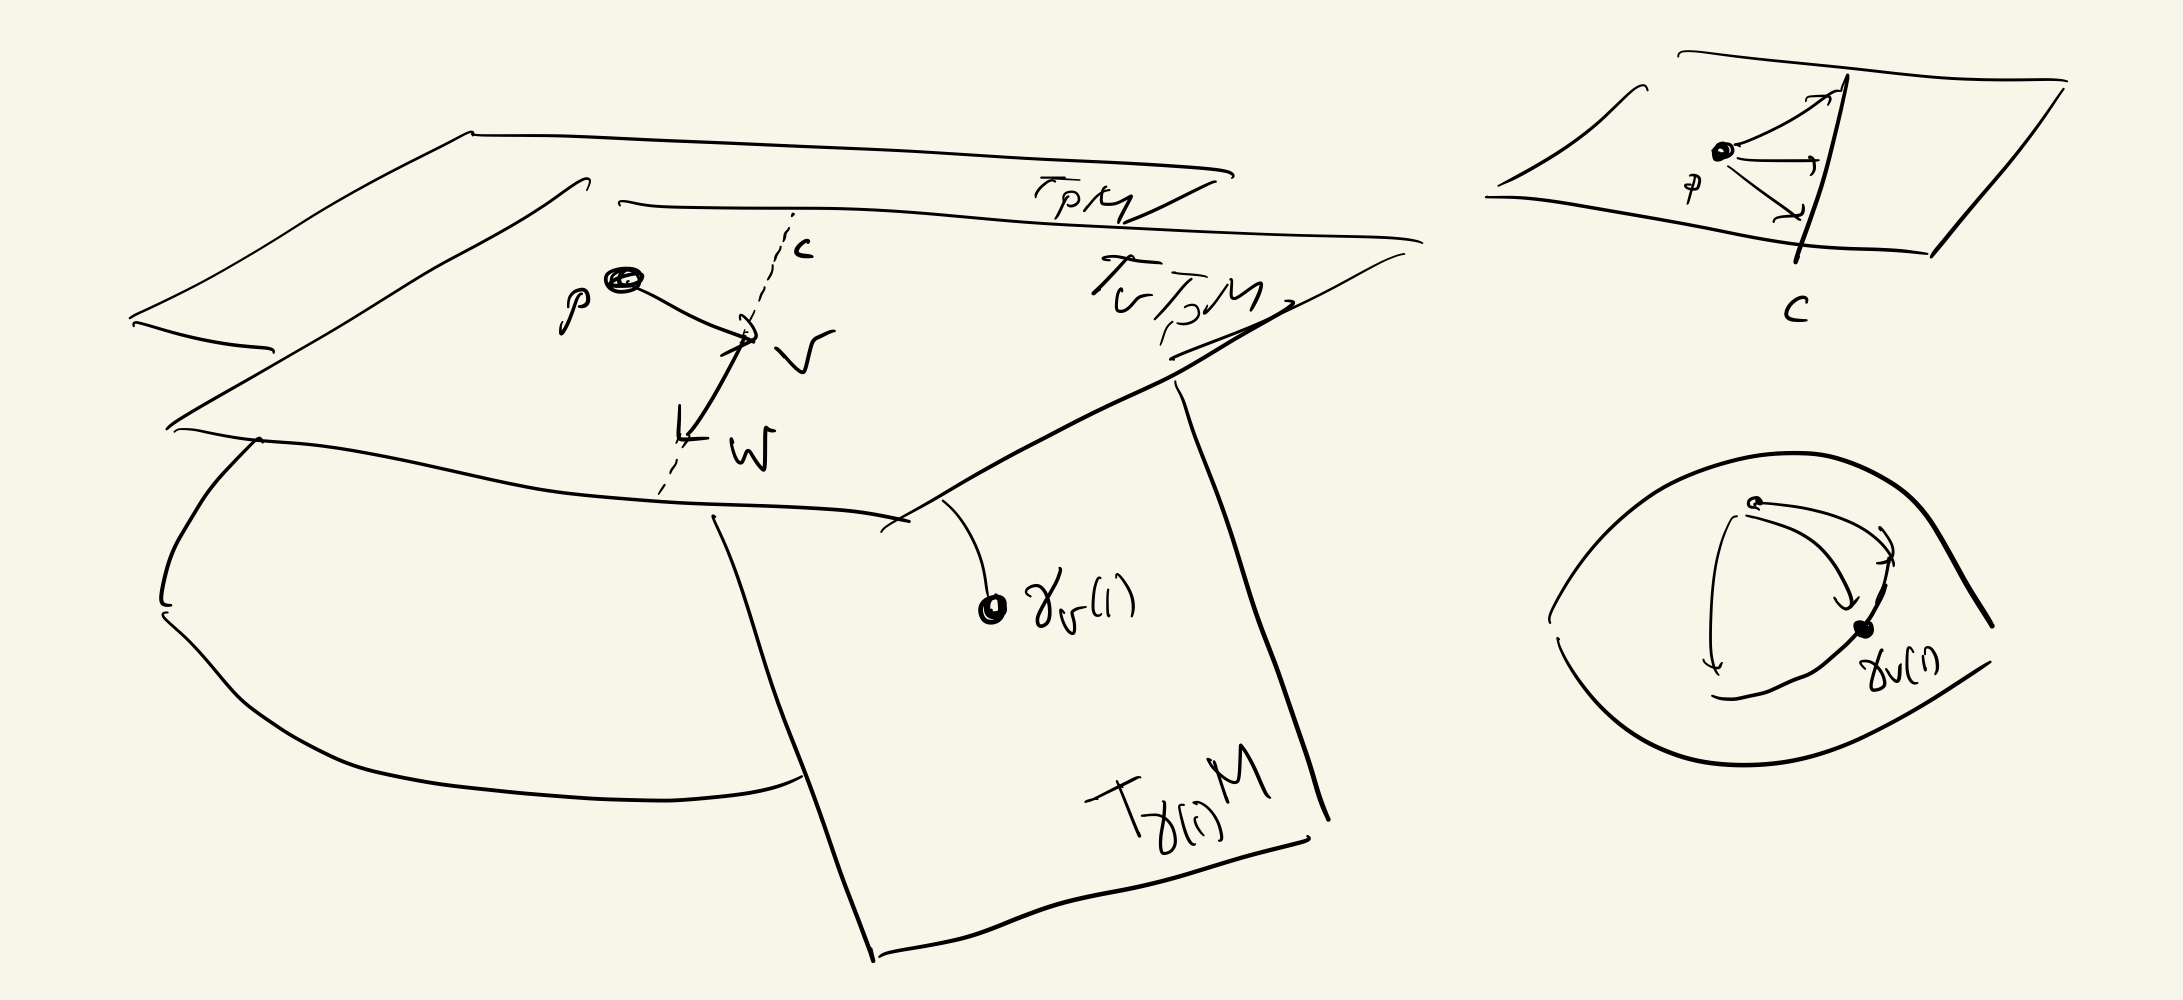 TₚM
c
TᵥTₚM
p
v
w
γᵥ(1)
T_γ(1) M
p
c
γᵥ(1)